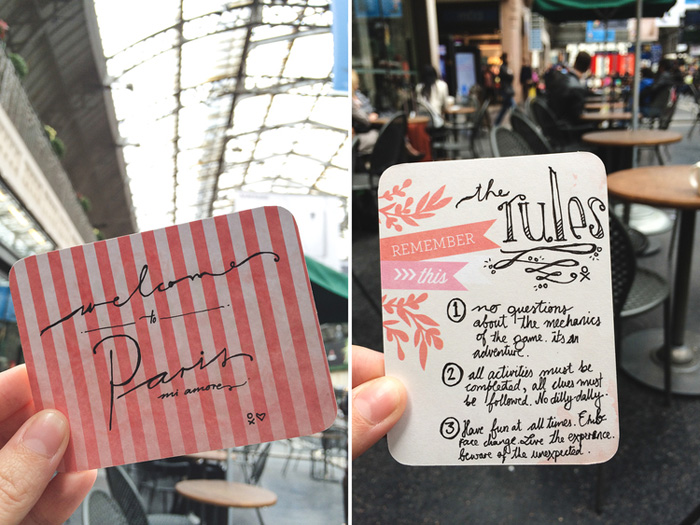 welcome
to
Paris
mi amore
the
rules
REMEMBER
>>> this
1 no questions
about the mechanics
of the game. it's an
adventure.
2 all activities must be
completed, all clues must
be followed. No dilly-dally.
3 Have fun at all times. Emb-
race change. Live the experience.
beware of the unexpected.